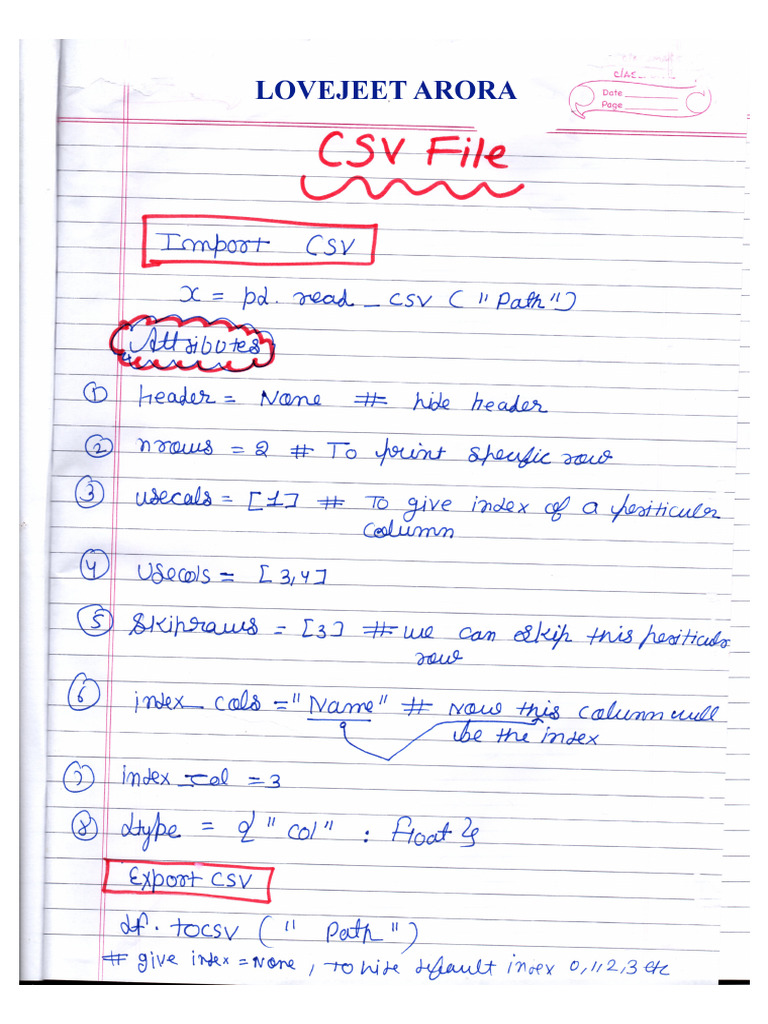 LOVEJEET ARORA
Date
Page
CSV File
Import CSV
x = pd. read_csv ( "Path")
Attributes
① header = None # hide header
② nrows = 2 # To print specific row
③ usecols = [1] # To give index of a perticuler
column
④ usecols = [3,4]
⑤ Skiprows = [3] # we can skip this perticulr
row
⑥ index_cols = "Name" # Now this column will
be the index
⑦ index_col = 3
⑧ dtype = { "col" : float }
Export CSV
df. tocsv ( " Path ")
# give index = None, To hide default index 0,1,2,3 etc